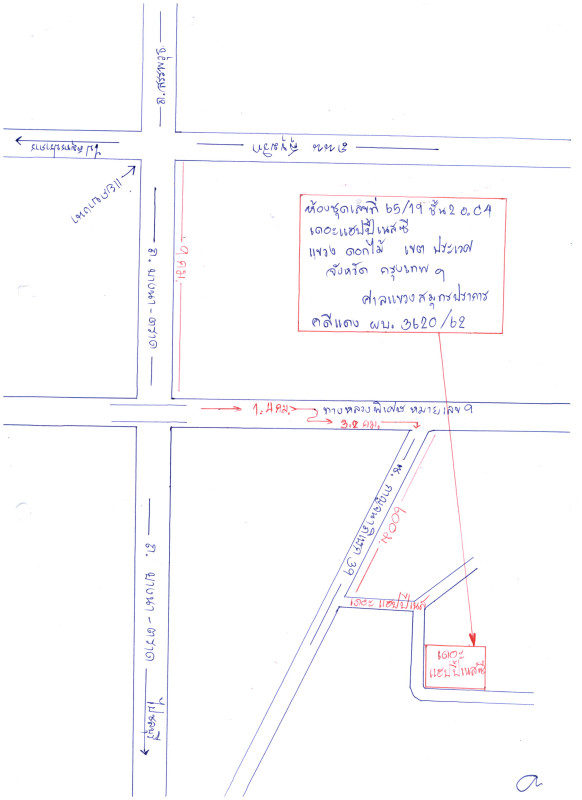 ถ.สรรพาวุธ
ไปสมุทรปราการ
ถนน สุขุมวิท
แยกบางนา
ถ. บางนา - ตราด
9 กม.
ห้องชุดเลขที่ 65/19 ชั้น2 อ.C4
เดอะแฮปปี้เนสซี่
แขวง ดอกไม้ เขต ประเวศ
จังหวัด กรุงเทพ ฯ
ศาลแขวงสมุทรปราการ
คดีแดง ผบ. 3620/62
1.4 กม.
ทางหลวงพิเศษ หมายเลข 9
3.2 กม.
ซ. กาญจนาภิเษก 39
600ม.
เดอะ แฮปปี้เนส
ถ. บางนา - ตราด
เดอะ
แฮปปี้เนสซี่
ไปชลบุรี